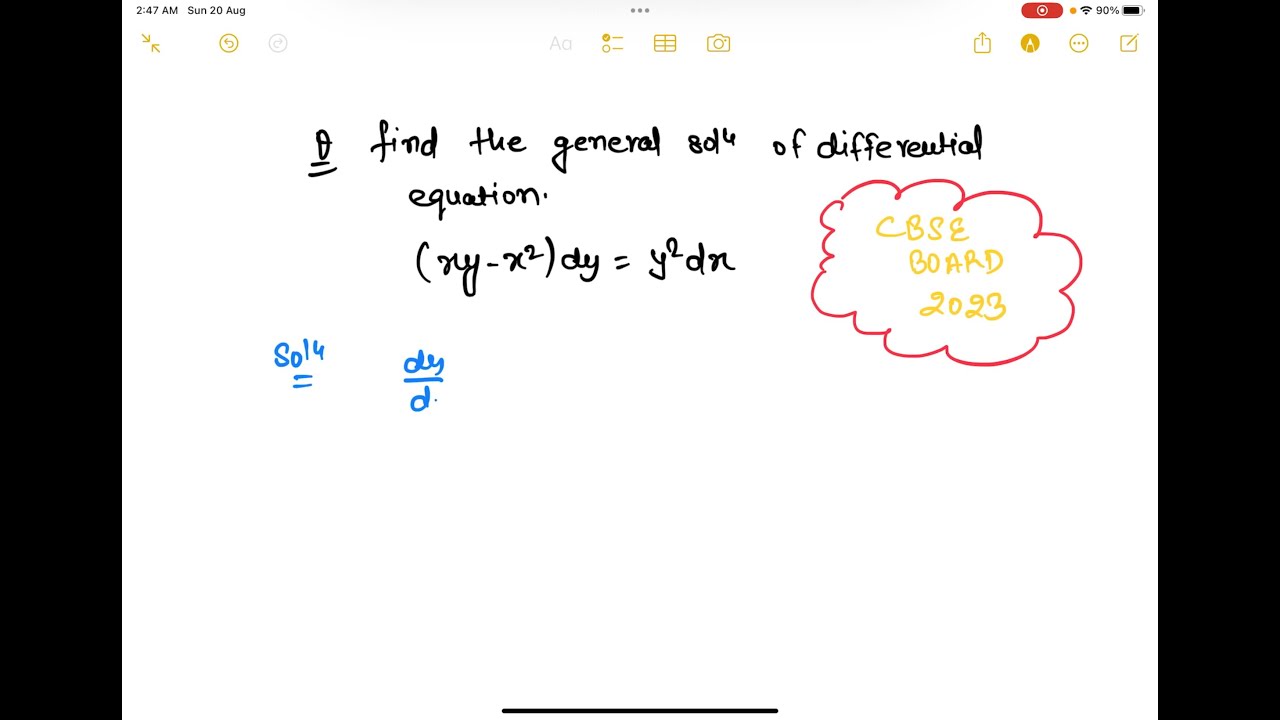 2:47 AM Sun 20 Aug
90%
Aa
Q find the general solⁿ of differential
equation.
(xy-x²)dy = y²dx
CBSE
BOARD
2023
Solⁿ
dy
d.